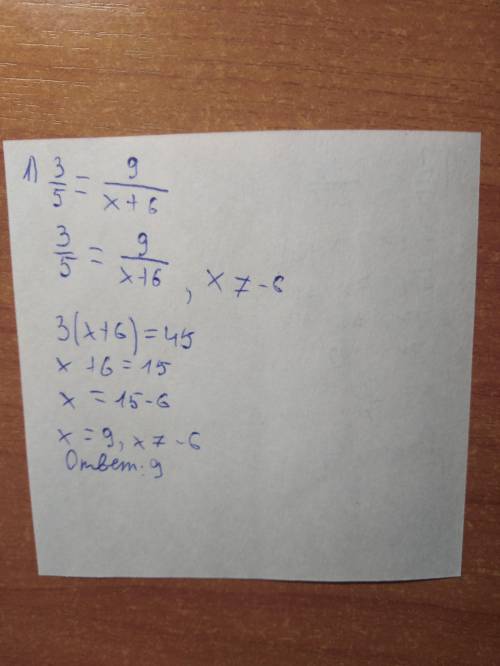 1) 3/5 = 9/(x+6)
3/5 = 9/(x+6), x ≠ -6
3(x+6)=45
x+6=15
x = 15-6
x = 9, x ≠ -6
Ответ: 9